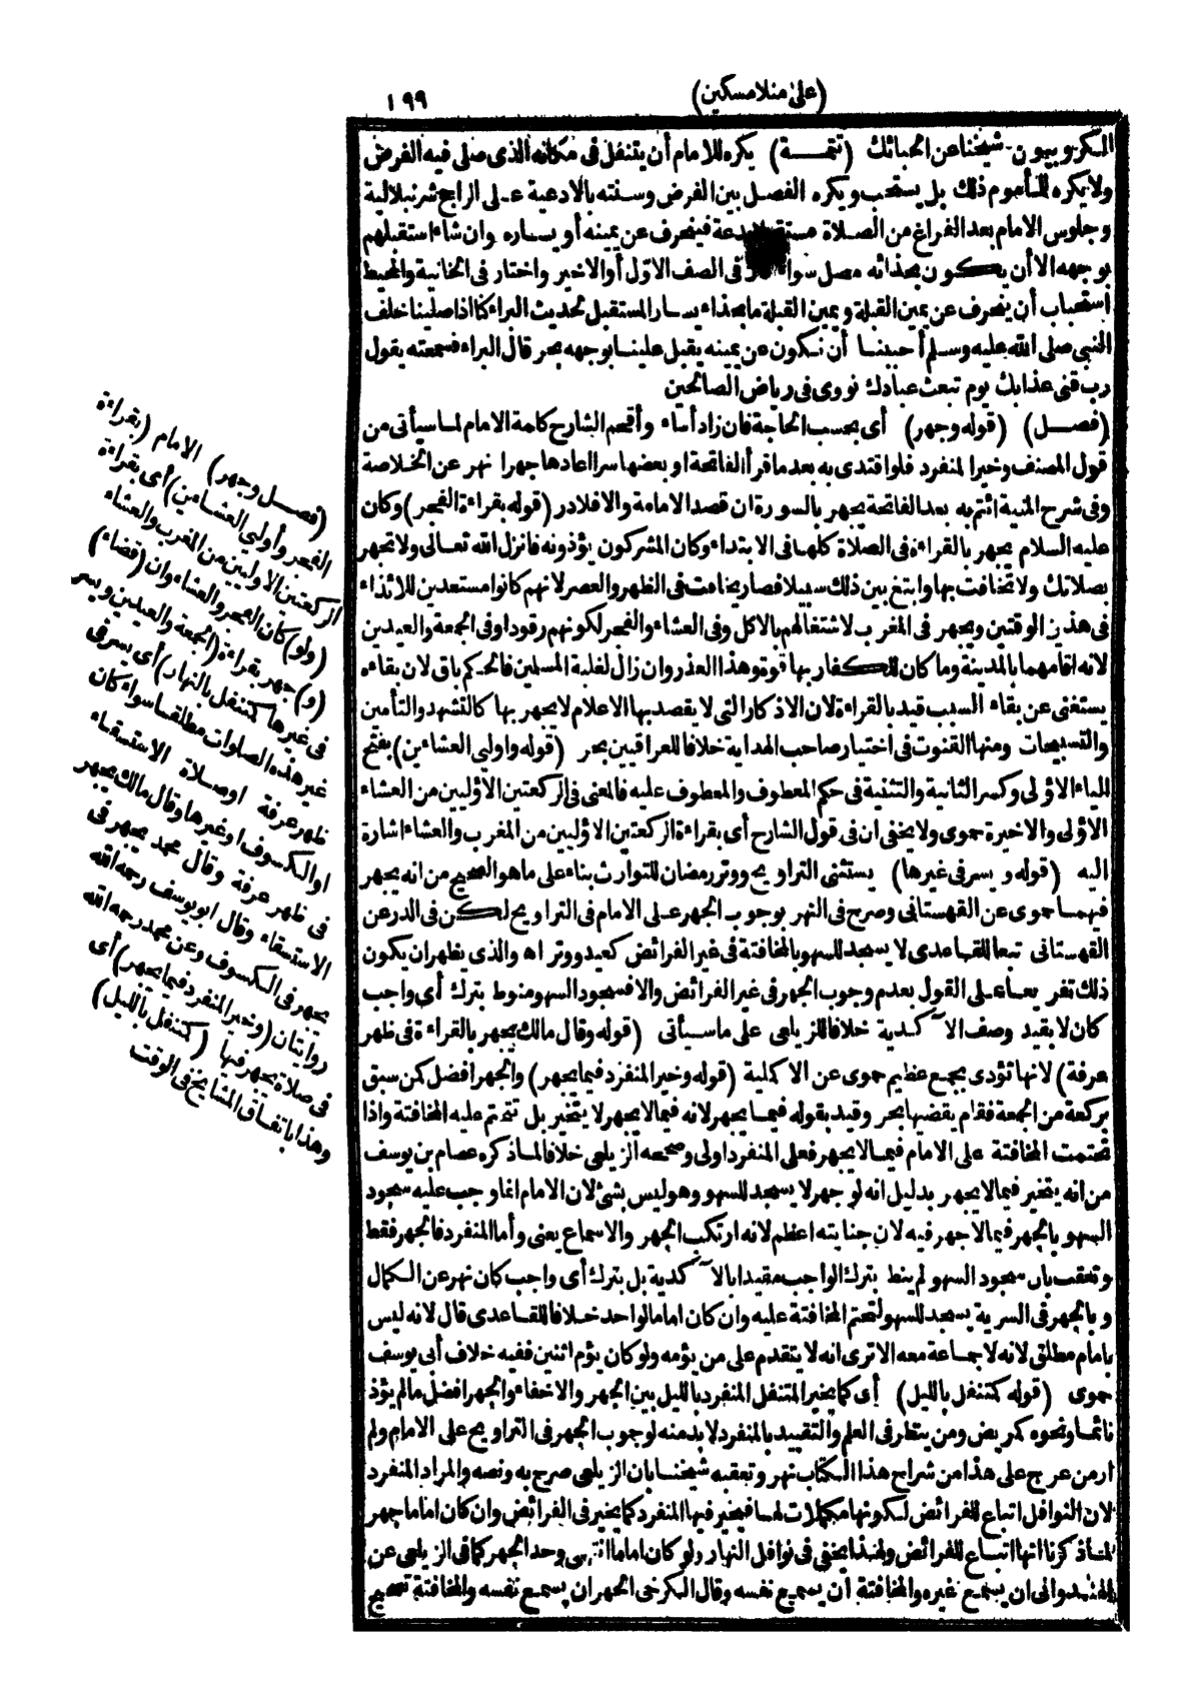 (على منلا مسكين)
١٩٩
الكروبيون شيخنا عن الحبائك (تتمـــة) يكره للامام أن يتنفل فى مكانه الذى صلى فيه الفرض
ولا يكره للمأموم ذلك بل يستحب ويكره الفصل بين الفرض وسنته بالادعية على الراجح شرنبلالية
وجلوس الامام بعد الفراغ من الصلاة بدعة فينحرف عن يمينه أو يساره وان شاء استقبلهم
بوجهه الا أن يكون بحذائه مصل سواء فى الصف الاول أو الاخير واختار فى الخانية والمحيط
استحباب أن ينحرف عن يمين القبلة ويمين القبلة ما بحذاء يسار المستقبل لحديث البراء كنا اذا صلينا خلف
النبى صلى الله عليه وسلم أحببنا أن نكون عن يمينه يقبل علينا بوجهه بحر قال البراء فسمعته يقول
رب قنى عذابك يوم تبعث عبادك نووى فى رياض الصالحين
(فصـــل) (قوله وجهر) أى بحسب الحاجة فان زاد أساء وأقحم الشارح كلمة الامام لما سيأتى من
قول المصنف وخير المنفرد فلو اقتدى به بعد ما قرأ الفاتحة او بعضها سرا اعادها جهرا نهر عن الخلاصة
وفى شرح المنية ائتم به بعد الفاتحة يجهر بالسورة ان قصد الامامة والا فلا در (قوله بقراءة الفجر) وكان
عليه السلام يجهر بالقراءة فى الصلاة كلها فى الابتداء وكان المشركون يؤذونه فانزل الله تعالى ولا تجهر
بصلاتك ولا تخافت بها وابتغ بين ذلك سبيلا فصار يخافت فى الظهر والعصر لانهم كانوا مستعدين للايذاء
فى هذين الوقتين ويجهر فى المغرب لاشتغالهم بالاكل وفى العشاء والفجر لكونهم رقودا وفى الجمعة والعيدين
لانه اقامهما بالمدينة وما كان للكفار بها قوة وهذا العذر وان زال لغلبة المسلمين فالحكم باق لان بقاءه
يستغنى عن بقاء السبب قيد بالقراءة لان الاذكار التى لا يقصد بها الاعلام لا يجهر بها كالتشهد والتأمين
والتسبيحات ومنها القنوت فى اختيار صاحب الهداية خلافا للعراقيين بحر (قوله واولى العشاءين) بفتح
الياء الاولى وكسر الثانية والتثنية فى حكم المعطوف والمعطوف عليه فالمعنى فى الركعتين الاوليين من العشاء
الاولى والاخيرة حموى ولا يخفى ان فى قول الشارح أى بقراءة الركعتين الاوليين من المغرب والعشاء اشارة
اليه (قوله ويسر فى غيرها) يستثنى التراويح ووتر رمضان للتوارث بناء على ما هو الصحيح من انه يجهر
فيهما حموى عن القهستانى وصرح فى النهر بوجوب الجهر على الامام فى التراويح لكن فى الدر عن
القهستانى تبعا للقاعدى لا يسجد للسهو بالمخافتة فى غير الفرائض كعيد ووتر اه والذى يظهر ان يكون
ذلك تفريعا على القول بعدم وجوب الجهر فى غير الفرائض والا فسجود السهو منوط بترك أى واجب
كان لا بقيد وصف الآكدية خلافا للزيلعى على ما سيأتى (قوله وقال مالك يجهر بالقراءة فى ظهر
عرفة) لانها تؤدى بجمع عظيم حموى عن الاكملية (قوله وخير المنفرد فيما يجهر) والجهر افضل كمن سبق
بركعة من الجمعة فقام يقضيها بحر وقيد بقوله فيما يجهر لانه فيما لا يجهر لا يتخير بل تتحتم عليه المخافتة واذا
تحتمت المخافتة على الامام فيما لا يجهر فعلى المنفرد اولى وصححه الزيلعى خلافا لما ذكره عصام بن يوسف
من انه يتخير فيما لا يجهر بدليل انه لو جهر لا يسجد للسهو وهو ليس بشئ لان الامام انما وجب عليه سجود
السهو بالجهر فيما لا جهر فيه لان جنايته اعظم لانه ارتكب الجهر والاسماع يعنى وأما المنفرد فالجهر فقط
وتعقب بان سجود السهو لم ينط بترك الواجب مقيدا بالآكدية بل بترك أى واجب كان نهر عن الكمال
وبالجهر فى السرية يسجد للسهو لتحتم المخافتة عليه وان كان اماما لواحد خلافا للقاعدى قال لانه ليس
بامام مطلق لانه لا جماعة معه الا ترى انه لا يتقدم على من يؤمه ولو كان يؤم اثنين ففيه خلاف أبى يوسف
حموى (قوله كمتنفل بالليل) أى كما يخير المتنفل المنفرد بالليل بين الجهر والاخفاء والجهر افضل ما لم يؤذ
نائما ونحوه كمريض ومن ينظر فى العلم والتقييد بالمنفرد لا بد منه لوجوب الجهر فى التراويح على الامام ولم
ار من عرج على هذا من شراح هذا الكتاب نهر وتعقبه شيخنا بان الزيلعى صرح به ونصه والمراد المنفرد
لان النوافل اتباع للفرائض لكونها مكملات لها فيخير فيها المنفرد كما يخير فى الفرائض وان كان اماما جهر
لما ذكرنا انها اتباع للفرائض ولهذا يخفى فى نوافل النهار ولو كان اماما انتهى وحد الجهر كما فى الزيلعى عن
الهندوانى ان يسمع غيره والمخافتة أن يسمع نفسه وقال الكرخى الجهر ان يسمع نفسه والمخافتة تصحيح
(فصـــل وجهر) الامام (بقراءة
الفجر وأولي العشاءين) أى بقراءة
الركعتين الاوليين من المغرب والعشاء
(ولو) كان الفجر والعشاءان (قضاء)
(و) جهر بقراءة (الجمعة والعيدين ويسر
فى غيرها كمتنفل بالنهار) أى يسر فى
غير هذه الصلوات مطلقا سواء كان
ظهر عرفة او صلاة الاستسقاء
او الكسوف او غيرها وقال مالك يجهر
فى ظهر عرفة وقال محمد يجهر فى
الاستسقاء وقال ابو يوسف رحمه الله
يجهر فى الكسوف وعن محمد رحمه الله
روايتان (وخير المنفرد فيما يجهر) أى
فى صلاة يجهر فيها (كمتنفل بالليل)
وهذا باتفاق المشايخ فى الوقت